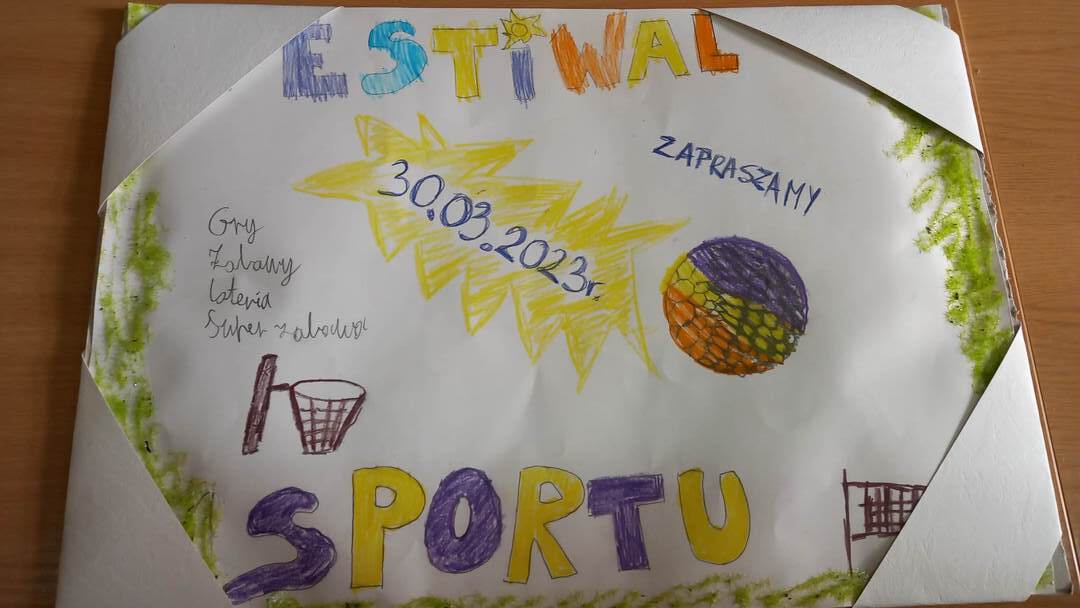 ESTIWAL
ZAPRASZAMY
30.03.2023r.
Gry
Zabawy
loteria
Super zabawa
SPORTU